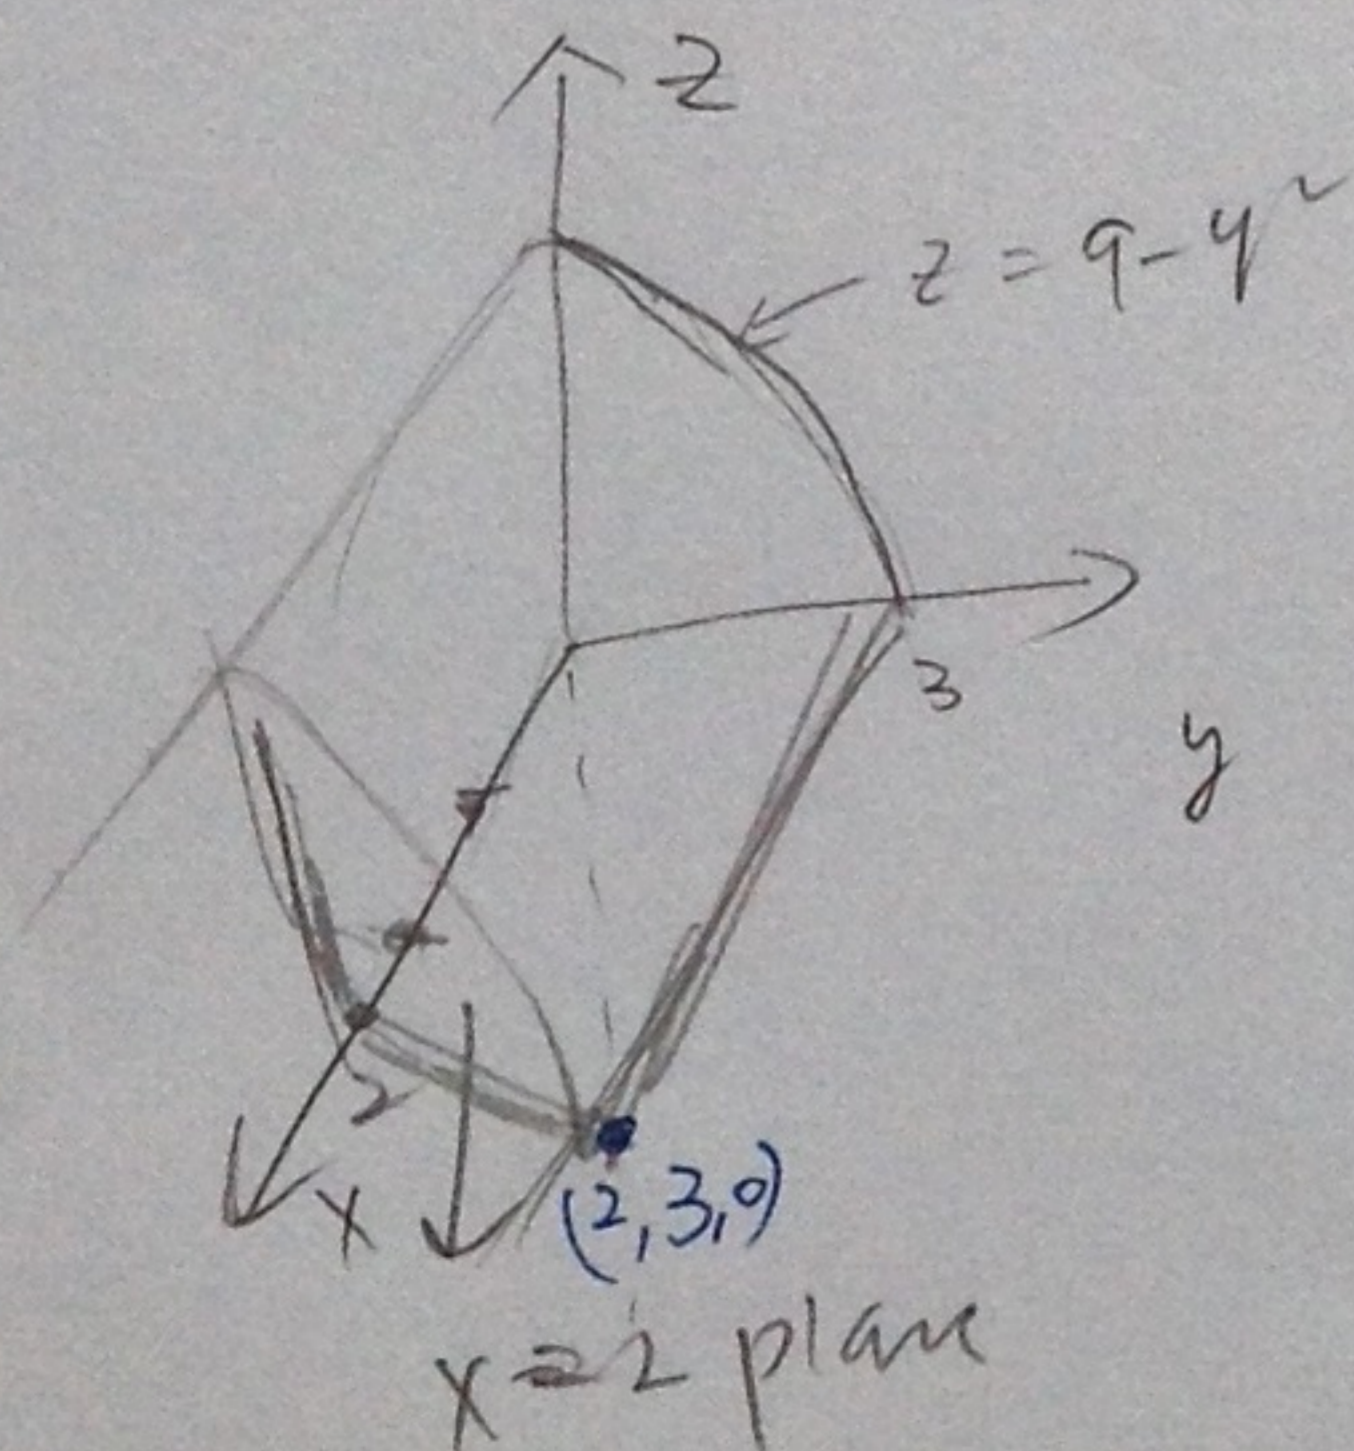 z
z = 9 - y²
3
y
2
x
(2,3,0)
x = 2 plane